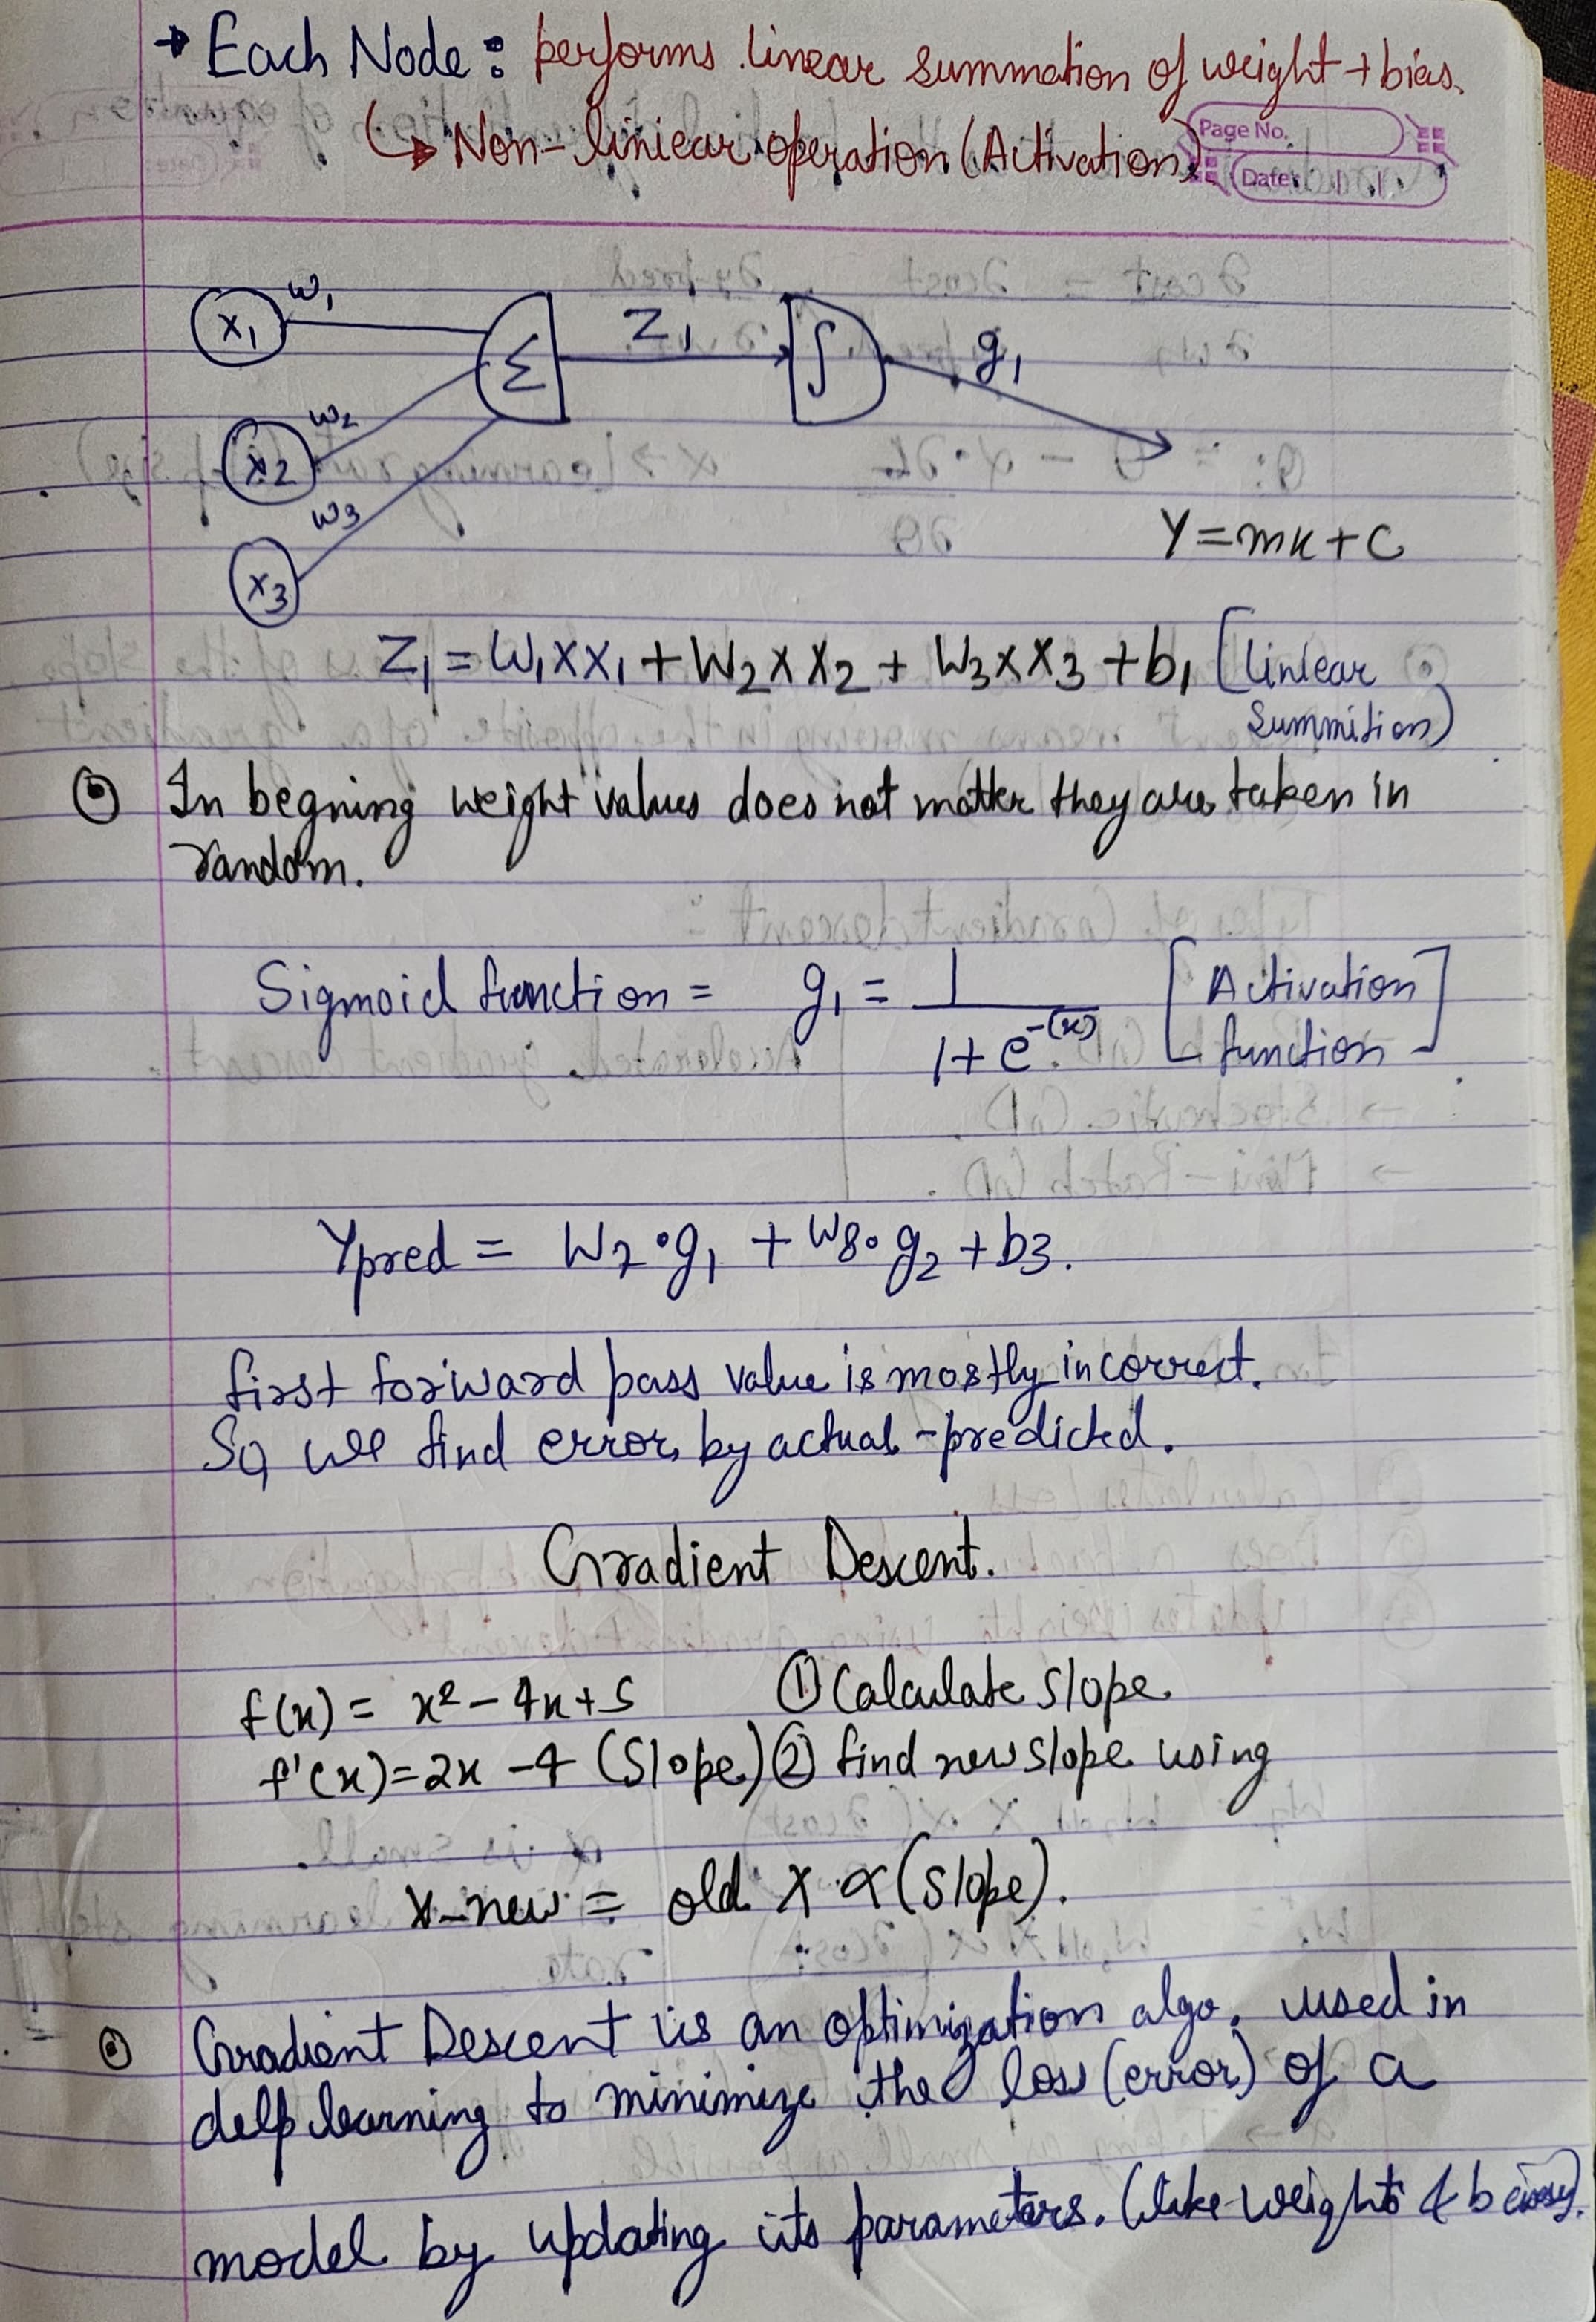 → Each Node: performs linear summation of weight + bias.
↳ Non-liniear operation (Activation)
Page No.
Date: / /
x1 w1 Σ z1 ∫ g1
x2 w2
x3 w3
Y = mx + c
Z1 = W1 x X1 + W2 x X2 + W3 x X3 + b1 [linlear
summition)
⊙ In begning weight values does not matter they are taken in
random.
Sigmoid function = g1 = 1 / 1 + e^-(x) [Activation
function]
Ypred = W7 • g1 + W8 • g2 + b3.
first forward pass value is mostly incorrect.
So, we find error by actual - predicted.
Gradient Descent.
f(x) = x² - 4x + 5 ① Calculate slope
f'(x) = 2x - 4 (Slope) ② find new slope using
x-new = old x ∝ (slope).
⊙ Gradient Descent is an optimization algo. used in
delp learning to minimize the loss (error) of a
model by updating its parameters. (like weights &